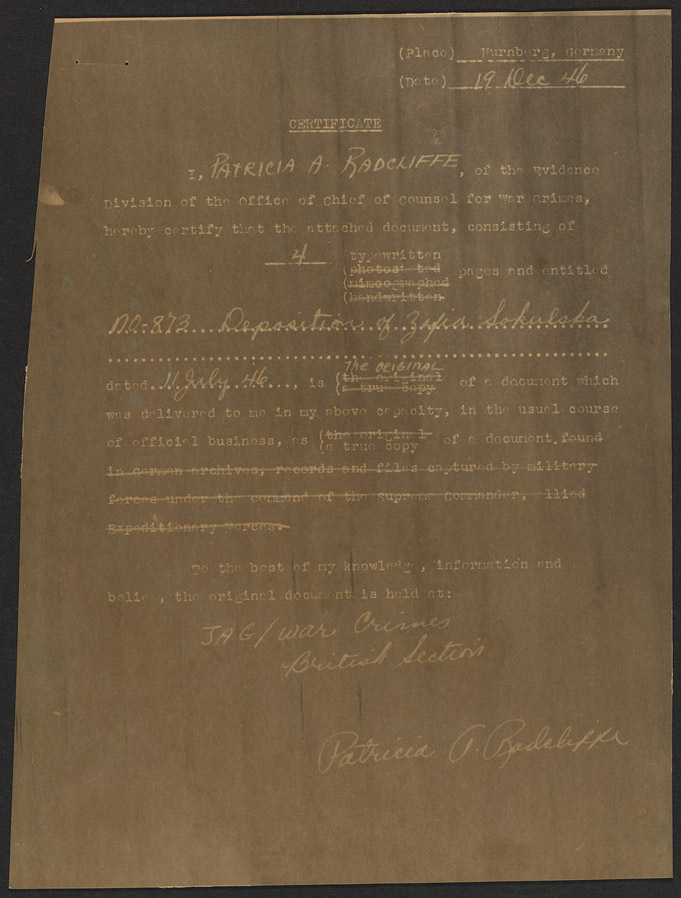 (Place) Nurnberg, Germany
(Date) 19 Dec 46
CERTIFICATE
I, PATRICIA A. RADCLIFFE, of the Evidence
Division of the Office of Chief of Counsel for War Crimes,
hereby certify that the attached document, consisting of
4 typewritten
(photostated pages and entitled
(mimeographed
(handwritten
NO-873 Deposition of Zofia Sokulska
The ORIGINAL
dated 11 July 46..., is (the original of a document which
(a true copy
was delivered to me in my above capacity, in the usual course
of official business, as (the original of a document found
(a true copy
in German archives, records and files captured by military
forces under the command of the Supreme Commander, Allied
Expeditionary Forces.
To the best of my knowledge, information and
belief, the original document is held at:
JAG/War Crimes
British Section
Patricia A. Radcliffe